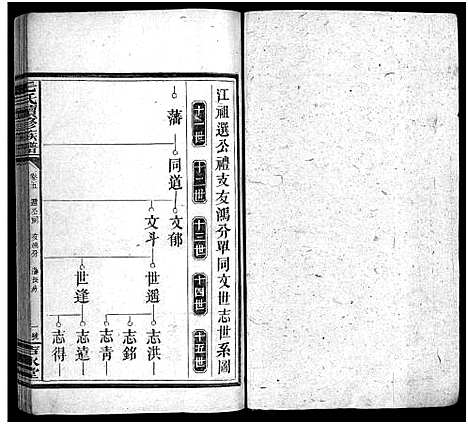 江祖選公禮支友鴻分單同文世志世系圖
十一世
十二世
十三世
十四世
十五世
藩
同道
文郁
文斗
世遥
世逢
志洪
志銘
志青
志遠
志得
氏續修族譜
卷五
一號
堂